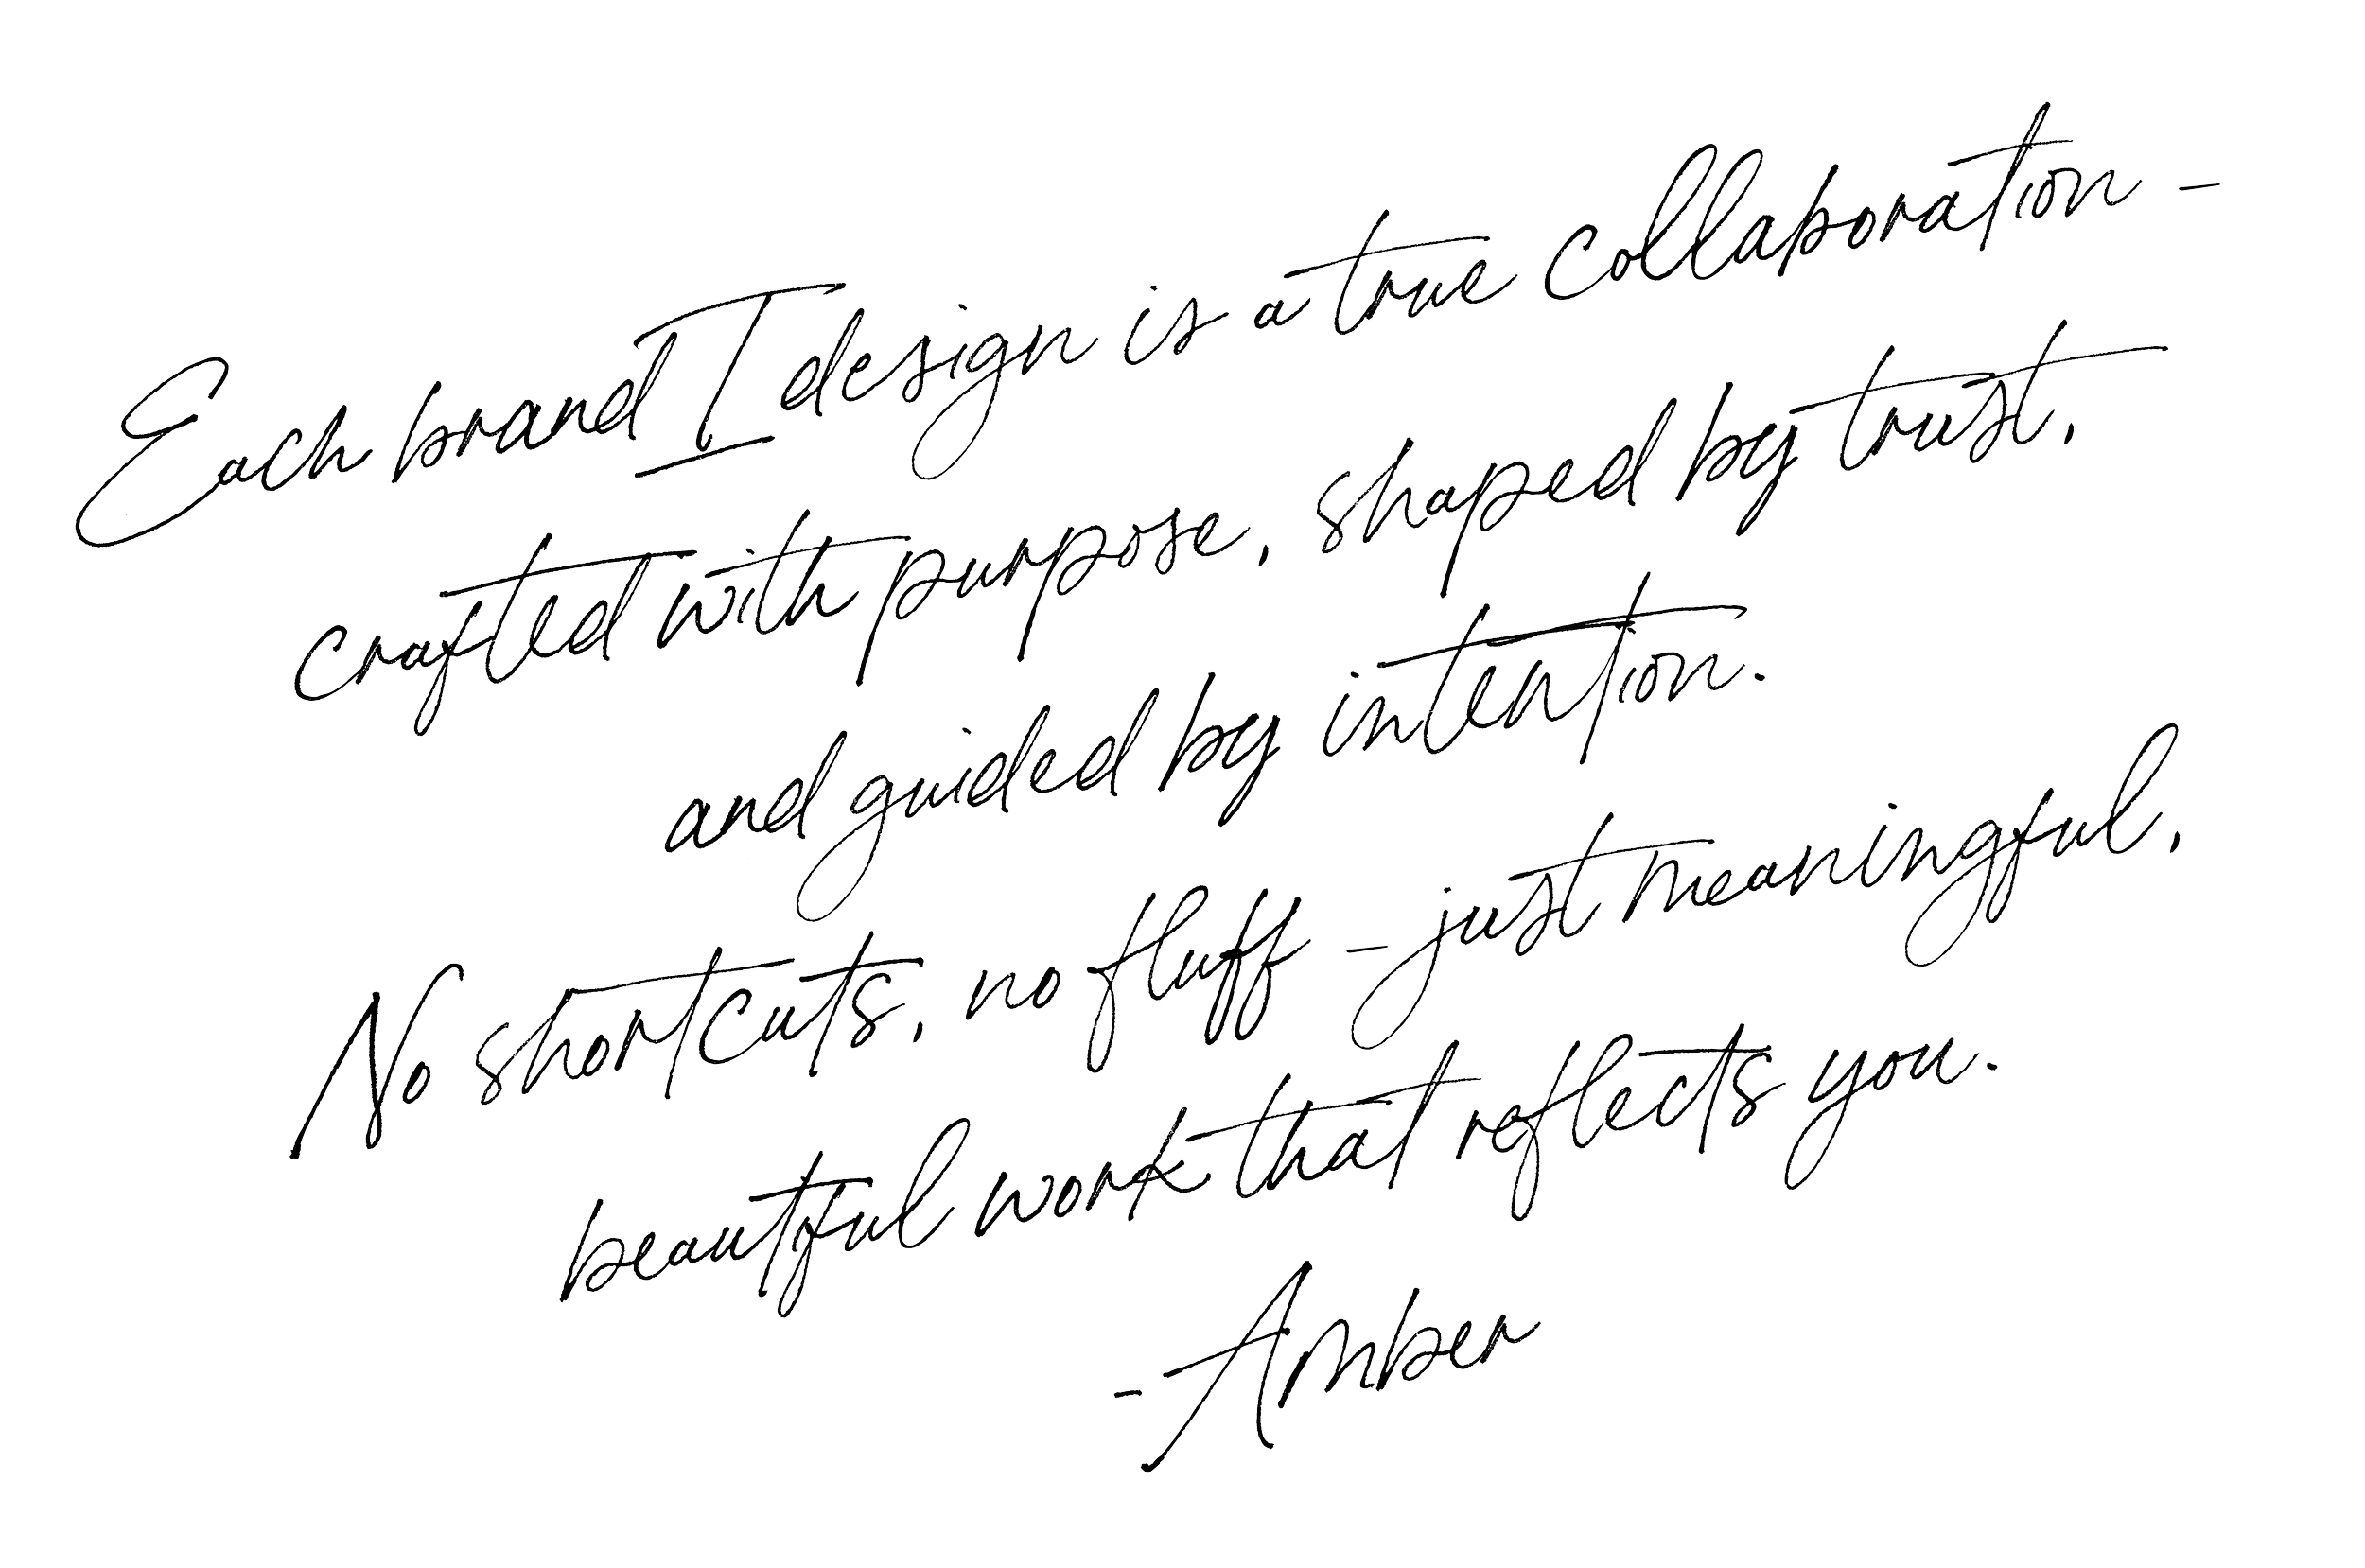 Each brand I design is a true collaboration -
crafted with purpose, shaped by trust,
and guided by intention.
No shortcuts, no fluff - just meaningful,
beautiful work that reflects you.
- Amber